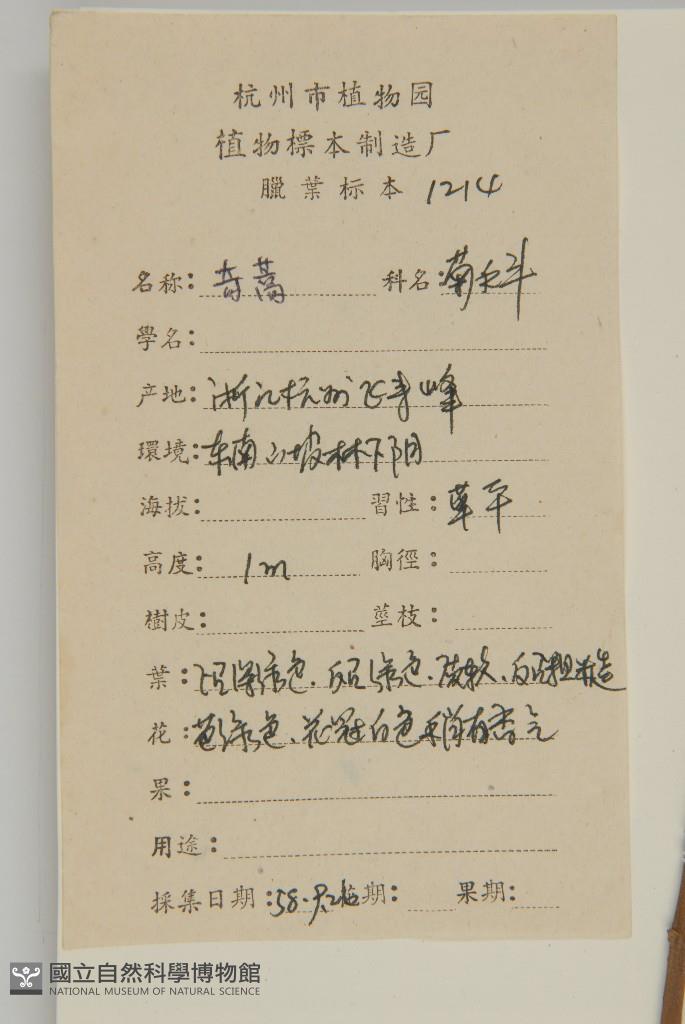 杭州市植物园
植物標本制造厂
臘葉标本 1214
名称: 奇蒿 科名: 菊科
學名:
产地: 浙江杭州飞来峰
環境: 东南山坡林下阴
海拔: 習性: 草本
高度: 1m 胸徑:
樹皮: 莖枝:
葉: 深绿色、反面绿色、
花: 苞绿色、花冠白色稍有香气
果:
用途:
採集日期: 58. 花期: 果期:
國立自然科學博物館
NATIONAL MUSEUM OF NATURAL SCIENCE